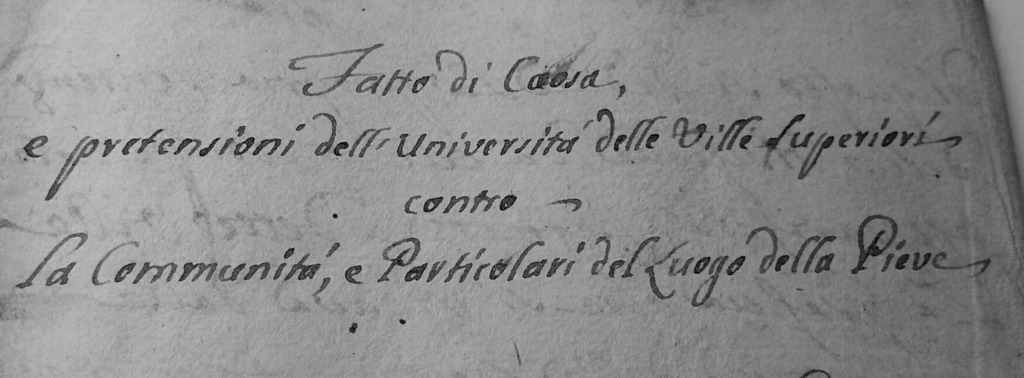 Fatto di Caosa,
e pretensioni dell'Università delle Ville Superiori
contro
la Communità, e Particolari del Luogo della Pieve